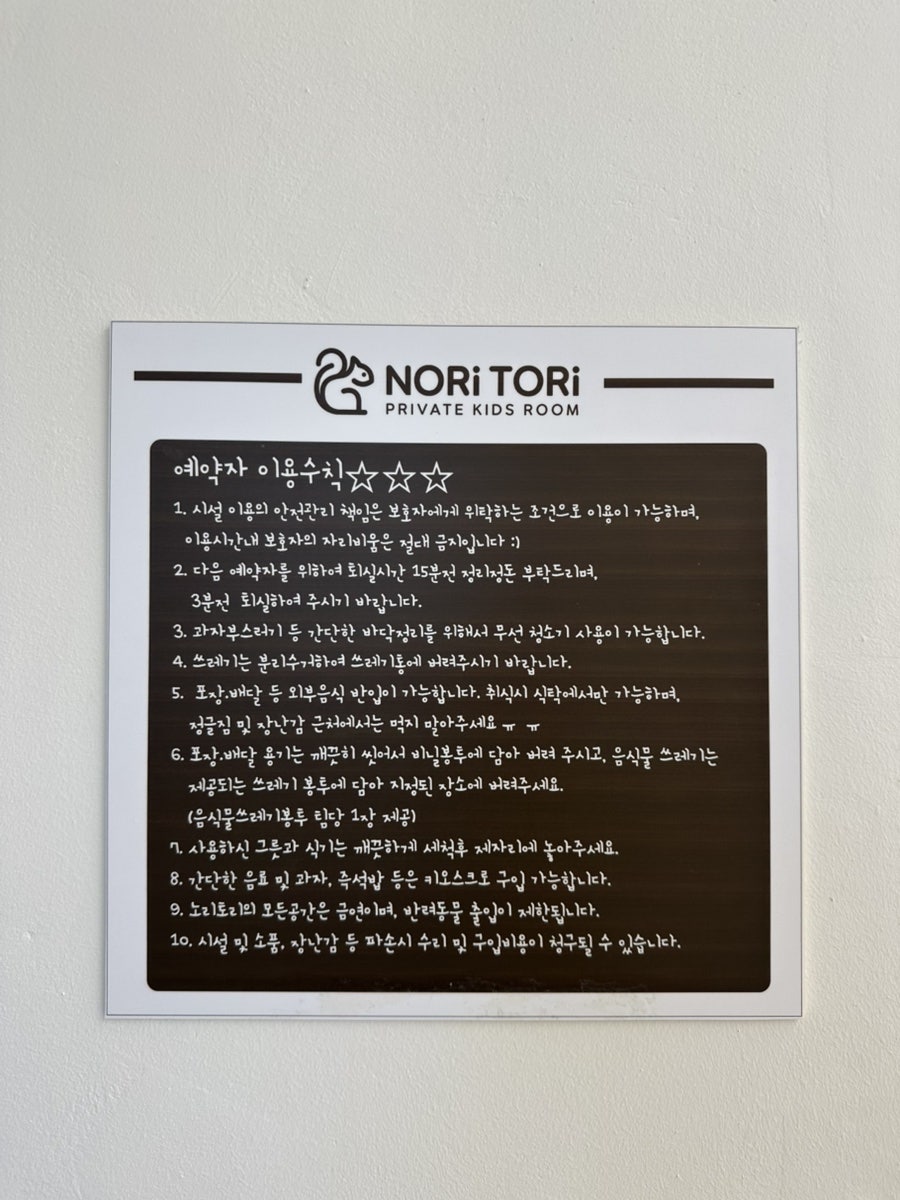 NORi TORi
PRIVATE KIDS ROOM
예약자 이용수칙☆☆☆
1. 시설 이용의 안전관리 책임은 보호자에게 위탁하는 조건으로 이용이 가능하며,
이용시간내 보호자의 자리비움은 절대 금지입니다 :)
2. 다음 예약자를 위하여 퇴실시간 15분전 정리정돈 부탁드리며,
3분전 퇴실하여 주시기 바랍니다.
3. 과자부스러기 등 간단한 바닥정리를 위해서 무선 청소기 사용이 가능합니다.
4. 쓰레기는 분리수거하여 쓰레기통에 버려주시기 바랍니다.
5. 포장.배달 등 외부음식 반입이 가능합니다. 취식시 식탁에서만 가능하며,
정글짐 및 장난감 근처에서는 먹지 말아주세요 ㅠ ㅠ
6. 포장.배달 용기는 깨끗히 씻어서 비닐봉투에 담아 버려 주시고, 음식물 쓰레기는
제공되는 쓰레기 봉투에 담아 지정된 장소에 버려주세요.
(음식물쓰레기봉투 팀당 1장 제공)
7. 사용하신 그릇과 식기는 깨끗하게 세척후 제자리에 놓아주세요.
8. 간단한 음료 및 과자, 즉석밥 등은 키오스크로 구입 가능합니다.
9. 노리토리의 모든공간은 금연이며, 반려동물 출입이 제한됩니다.
10. 시설 및 소품, 장난감 등 파손시 수리 및 구입비용이 청구될 수 있습니다.